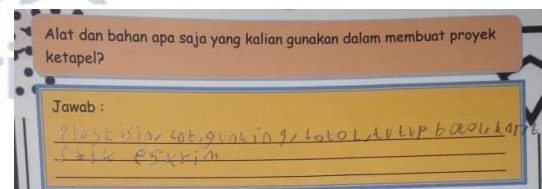 Alat dan bahan apa saja yang kalian gunakan dalam membuat proyek
ketapel?
Jawab :
Plastisin, cat, gunting, botol, tutup botol, karet
Stik eskrim